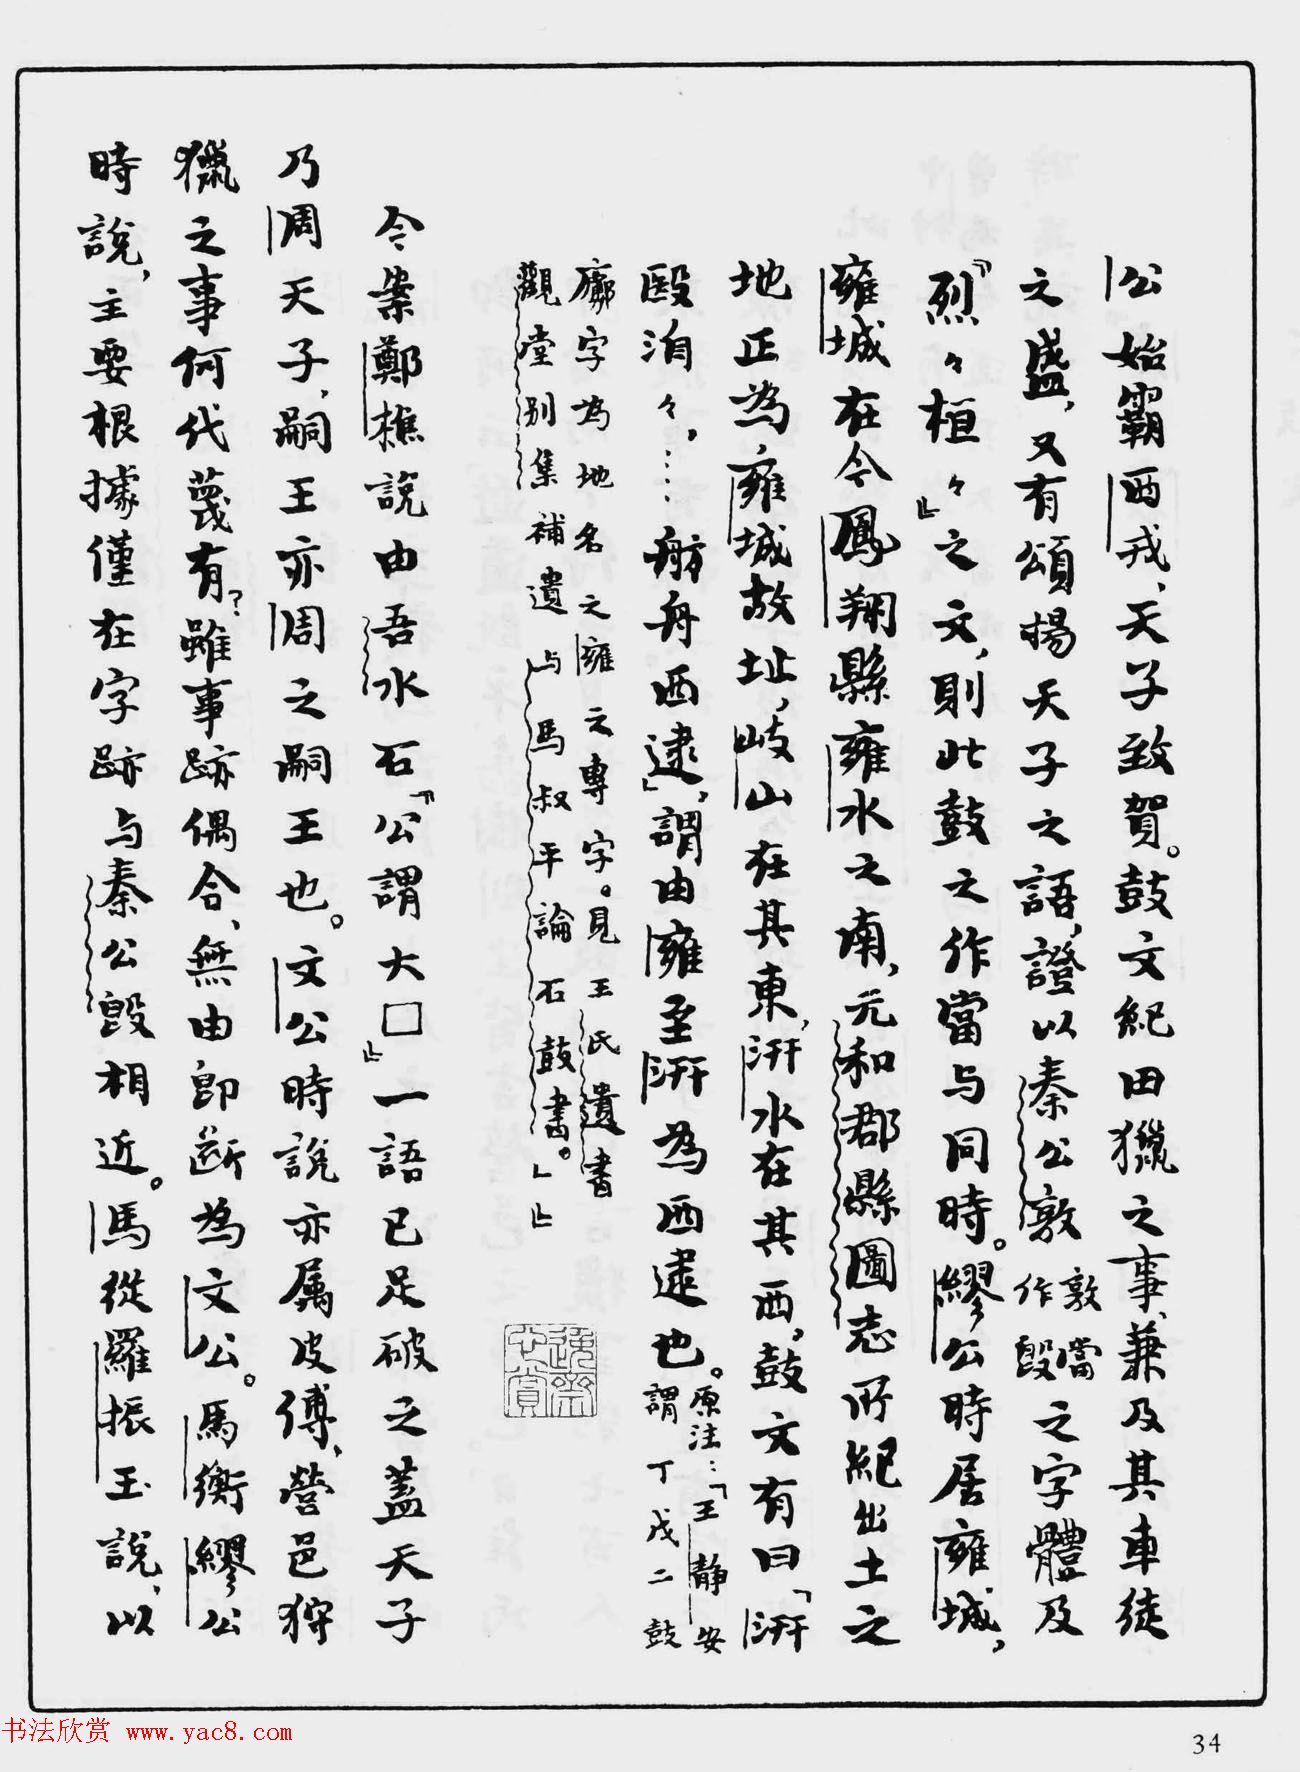 公始霸西戎、天子致賀。鼓文紀田獵之事、兼及其車徒
之盛，又有頌揚天子之語，證以秦公敦敦當作𣪘之字體及
『烈々桓々』之文，則此鼓之作當与同時。繆公時居雍城，
雍城在今鳳翔縣雍水之南，元和郡縣圖志所紀出土之
地正為雍城故址，岐山在其東，汧水在其西，鼓文有曰「汧
殹洎々，……舫舟西逮」，謂由雍至汧為西逮也。原注：「王静安謂丁戊二鼓
廓字為地名之雍之專字。見王氏遺書
觀堂别集補遺与馬叔平論石鼓書。」』
今案鄭樵說由吾水石『公謂大□』一語已足破之蓋天子
乃周天子，嗣王亦周之嗣王也。文公時說亦属皮傅、營邑狩
獵之事何代蔑有？雖事跡偶合、無由即断為文公。馬衡繆公
時說，主要根據僅在字跡与秦公𣪘相近。馬從羅振玉說，以
书法欣赏 www.yac8.com
34